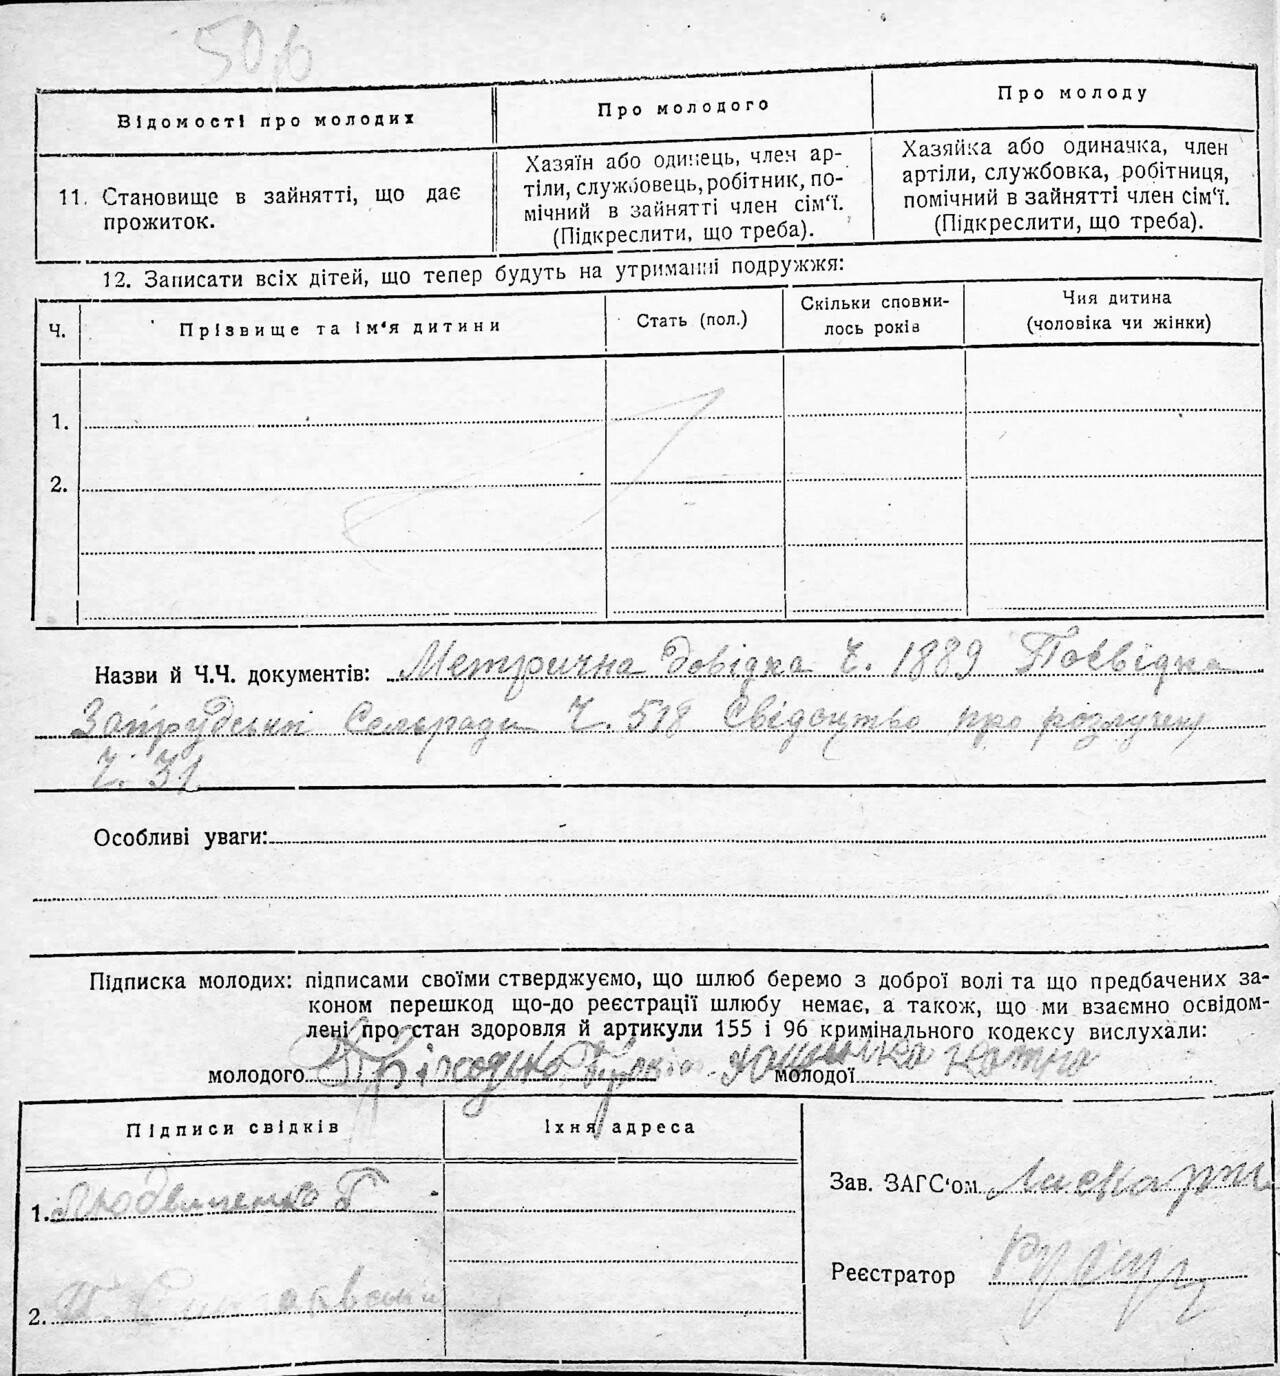 Відомості про молодих
Про молодого
Про молоду
11. Становище в зайнятті, що дає
прожиток.
Хазяїн або одинець, член ар-
тіли, службовець, робітник, по-
мічний в зайнятті член сім‘ї.
(Підкреслити, що треба).
Хазяйка або одиначка, член
артіли, службовка, робітниця,
помічний в зайнятті член сім‘ї.
(Підкреслити, що треба).
12. Записати всіх дітей, що тепер будуть на утриманні подружжя:
Ч.
Прізвище та ім‘я дитини
Стать (пол.)
Скільки сповни-
лось років
Чия дитина
(чоловіка чи жінки)
1.
2.
Назви й Ч.Ч. документів: Метрична довідка Ч. 1889 Посвідка
Запрудської Сельради Ч. 518 Свідоцтво про розлучення
Ч. 31
Особливі уваги:
Підписка молодих: підписами своїми стверджуємо, що шлюб беремо з доброї волі та що предбачених за-
коном перешкод що-до реєстрації шлюбу немає, а також, що ми взаємно освідом-
лені про стан здоровля й артикули 155 і 96 кримінального кодексу вислухали:
молодого Приходько молодої
Підписи свідків
Їхня адреса
1.
2.
Зав. ЗАГС‘ом
Реєстратор